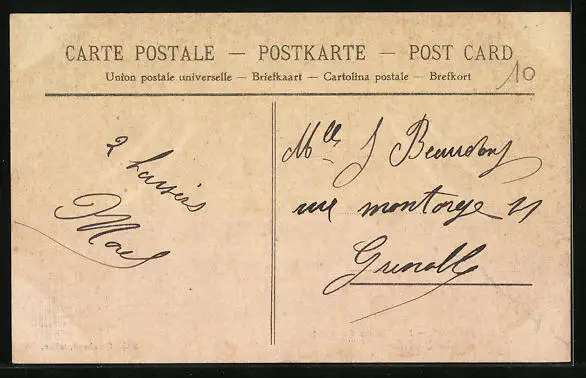 CARTE POSTALE — POSTKARTE — POST CARD
Union postale universelle — Briefkaart — Cartolina postale — Brefkort
10
2 baisers
Mlle J Beaudoin
rue montorge 11
Grenoble